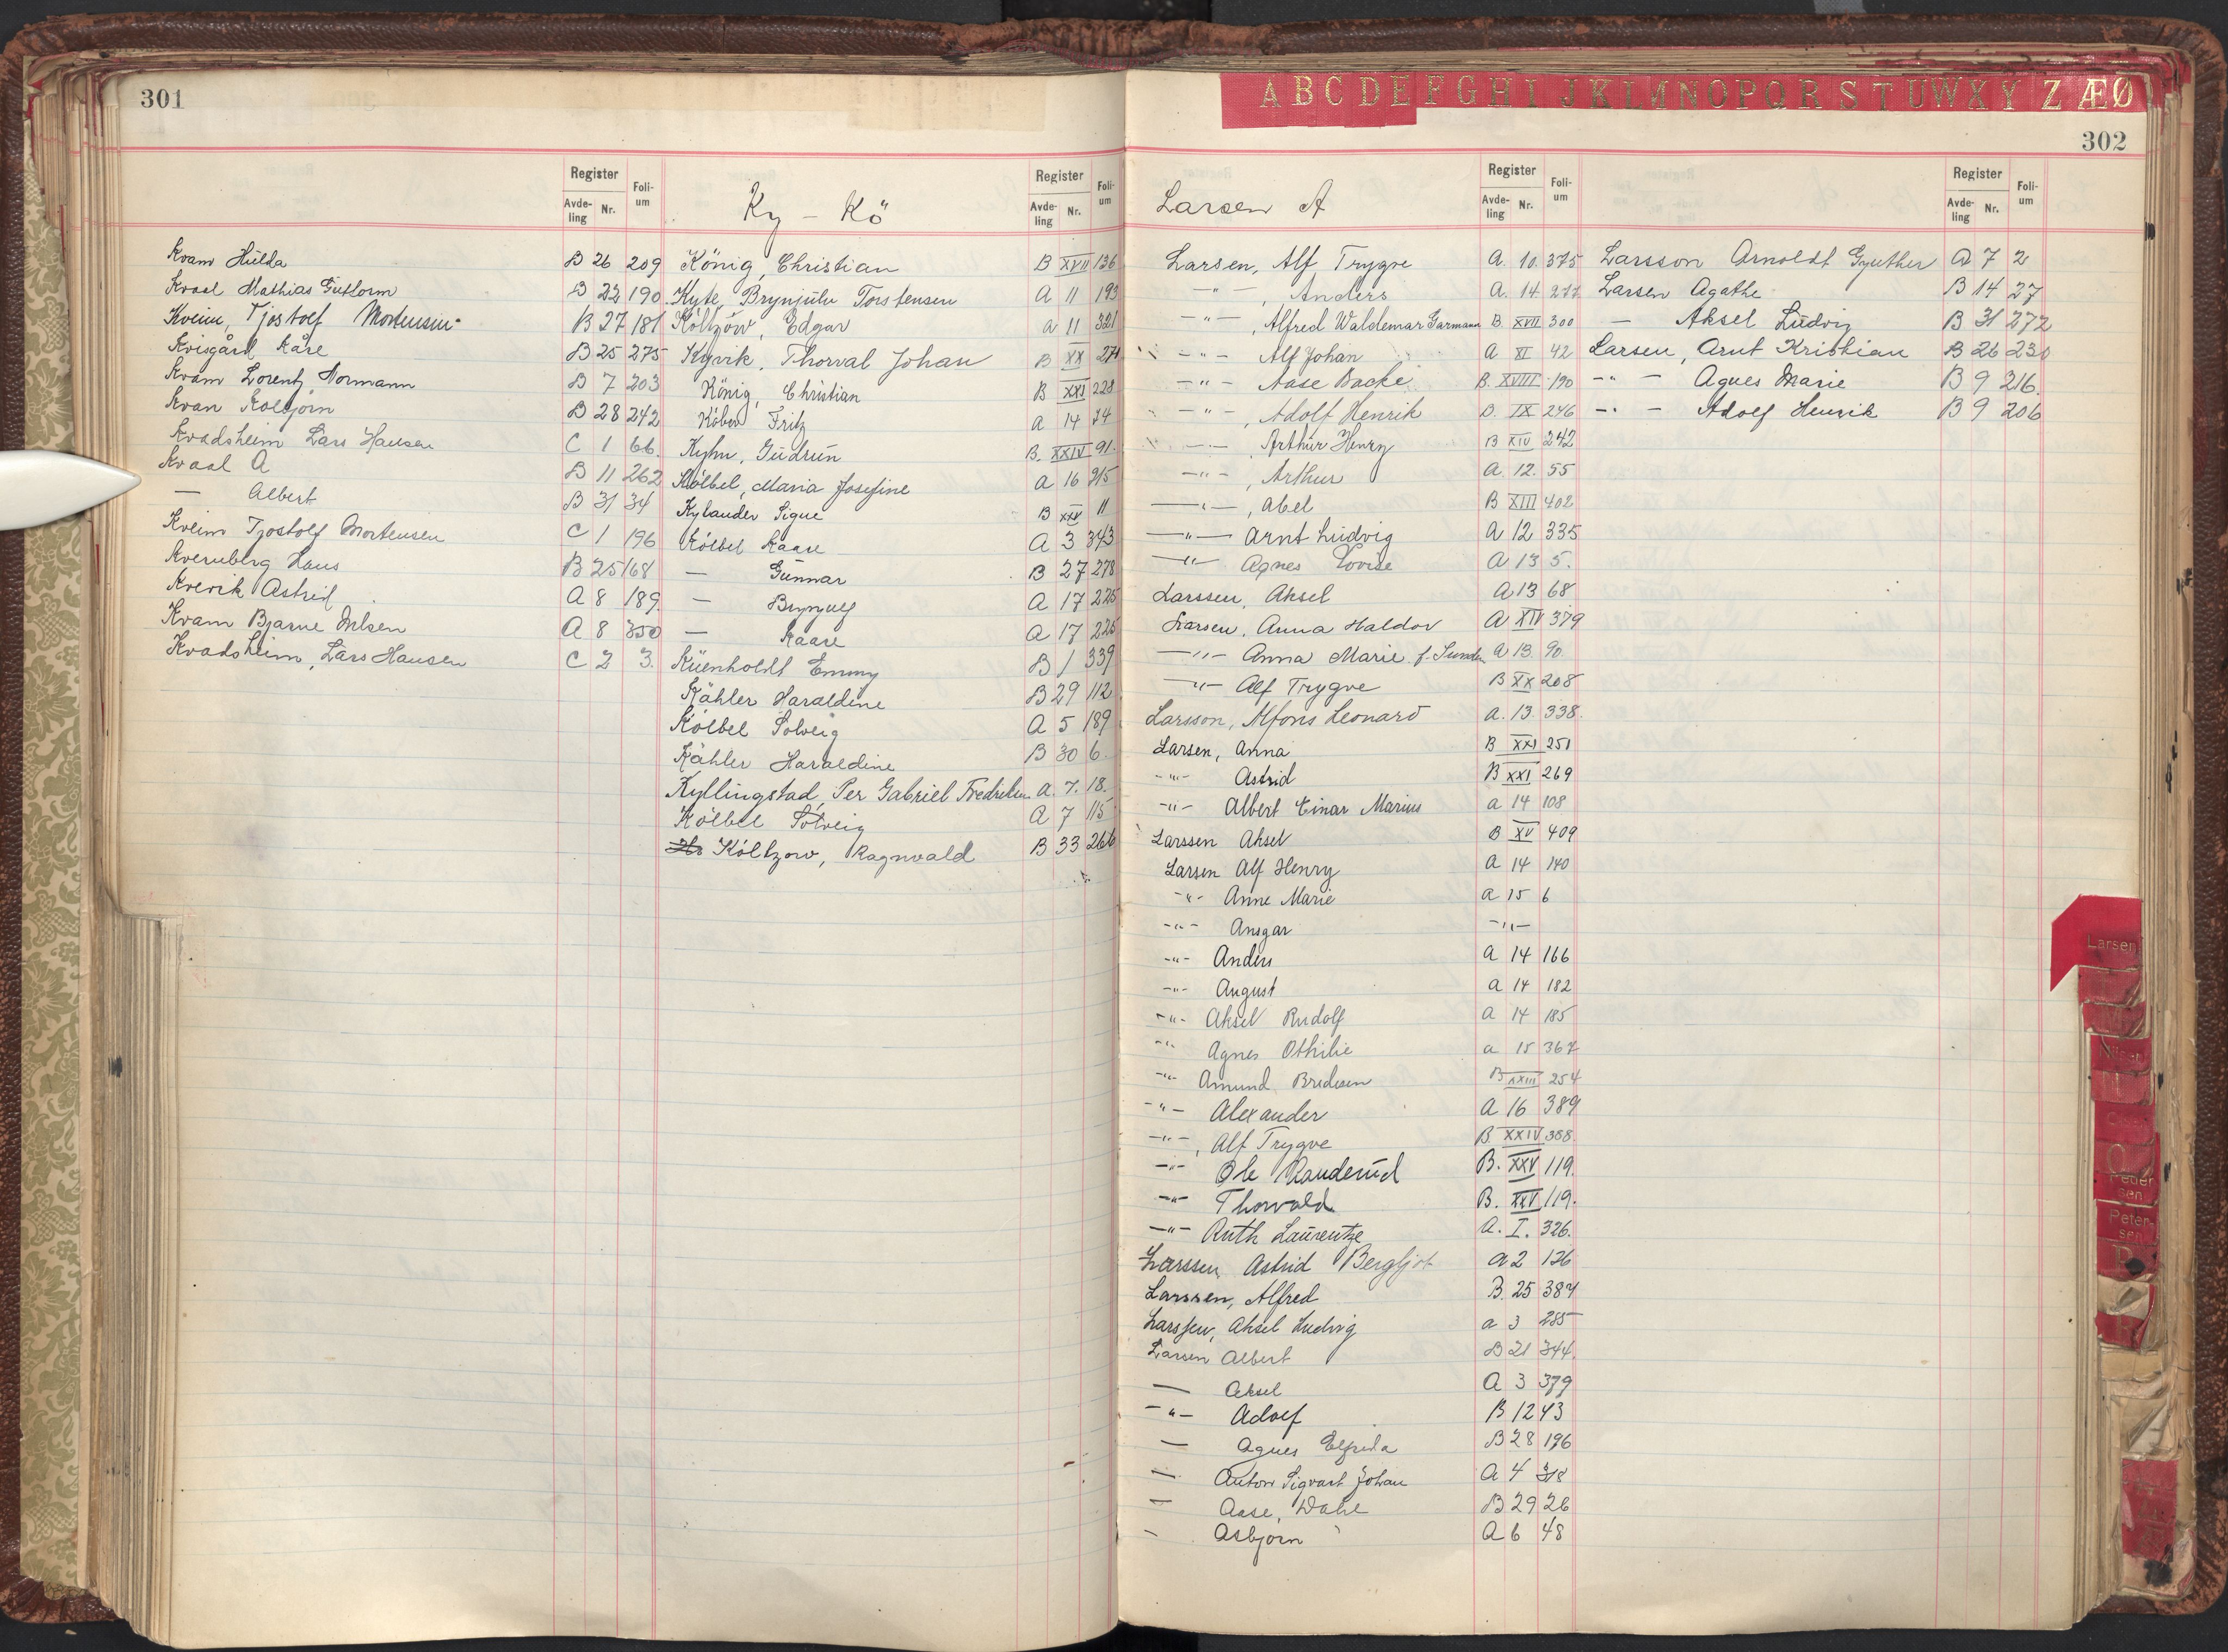 301
Register
Avde-ling Nr. Foli-um
Kvam Hulda B 26 209
Kvaal Mathias Guttorm B 22 190
Kveim, Tjostolf Mortensen B 27 181
Kvisgård Kåre B 25 275
Kvam Lorentz Normann B 7 203
Kvan Kolbjörn B 28 242
Kvadsheim Lars Hansen C 1 66
Kvaal A B 11 262
— Albert B 31 34
Kveim Tjostolf Mortensen C 1 196
Kvernberg Hans B 25 168
Kvervik Astrid A 8 189
Kvam Bjarne Nilsen A 8 350
Kvadsheim, Lars Hansen C 2 3
Ky – Kö
Register
Avde-ling Nr. Foli-um
König, Christian B XVII 136
Kyte, Brynjulv Torstensen A 11 193
Költzöw, Edgar a 11 321
Kyvik, Thorval Johan B XX 271
König, Christian B XXI 228
Köber Fritz a 14 74
Kyhn, Gudrun B. XXIV 91
Kölbel, Maria Josefine a 16 215
Kylander Signe B XXV 11
Kölbel Kaare A 3 343
— Gunnar B 27 278
— Brynjulf A 17 225
— Kaare A 17 225
Küenholdt Emmy B 1 339
Kähler Haraldine B 29 112
Kölbel Solveig A 5 189
Kähler Haraldine B 30 6
Kyllingstad, Per Gabriel Fredriksen A. 7. 18.
Kölbel Solveig A 7 115
Költzow, Ragnvald B 33 266
A B C D E F G H I J K L M N O P Q R S T U W X Y Z Æ Ø
302
Larsen A
Register
Avde-ling Nr. Foli-um
Larsen, Alf Trygve A. 10. 375
—"—, Anders A. 14 277
—"—, Alfred Waldemar Garmann B. XVII 300
—"— Alf Johan A XI 42
—"— Aase Backe B. XVIII 190
—"—, Adolf Henrik B. IX 246
—"— Arthur Henry B XIV 242
—"—, Arthur A. 12. 55
—"—, Abel B XIII 402
—"— Arnt Ludvig A 12 335
—"— Agnes Lovise A 13 5.
Larssen, Aksel A 13 68
Larsen, Anna Haldor A XIV 379
—"— Anna Marie f. Sunde A 13. 90
—"— Alf Trygve B XX 208
Larsson, Alfons Leonard a. 13. 338
Larsen, Anna B XXI 251
—"— Astrid B XXI 269
—"— Albert Einar Marius a 14 108
Larssen Aksel B XV 409
Larsen Alf Henry a 14 140
—"— Anne Marie a 15 6
—"— Ansgar —"—
—"— Anders a 14 166
—"— August a 14 182
—"— Aksel Rudolf a 14 185
—"— Agnes Othilie a 15 367
—"— Amund Bredesen B XXIII 254
—"— Alexander A 16 389
—"—, Alf Trygve B. XXIV 388
—"— Ole Randerud B. XXV 119.
—"— Thorvald B. XXV 119.
—"— Ruth Laurentze A. I. 326.
Larssen Astrid Bergljot a 2 136
Larssen, Alfred B. 25 384
Larssen, Aksel Ludvig a 3 285
Larsen Albert B 21 344.
— Aksel A 3 379
—"— Adolf B 12 43
— Agnes Elfrida B 28 196
— Anton Sigvart Johan A 4 318
— Aase, Dahl B 29 26
— Asbjørn A 6 48
Register
Avde-ling Nr. Foli-um
Larsson Arnoldt Gynther A 7 2
Larsen Agathe B 14 27
— Aksel Ludvig B 31 272
Larsen, Arnt Kristian B 26 230
—"— Agnes Marie B 9 216
—"— Adolf Henrik B 9 206
Larsen
Peder-sen
Peter-sen